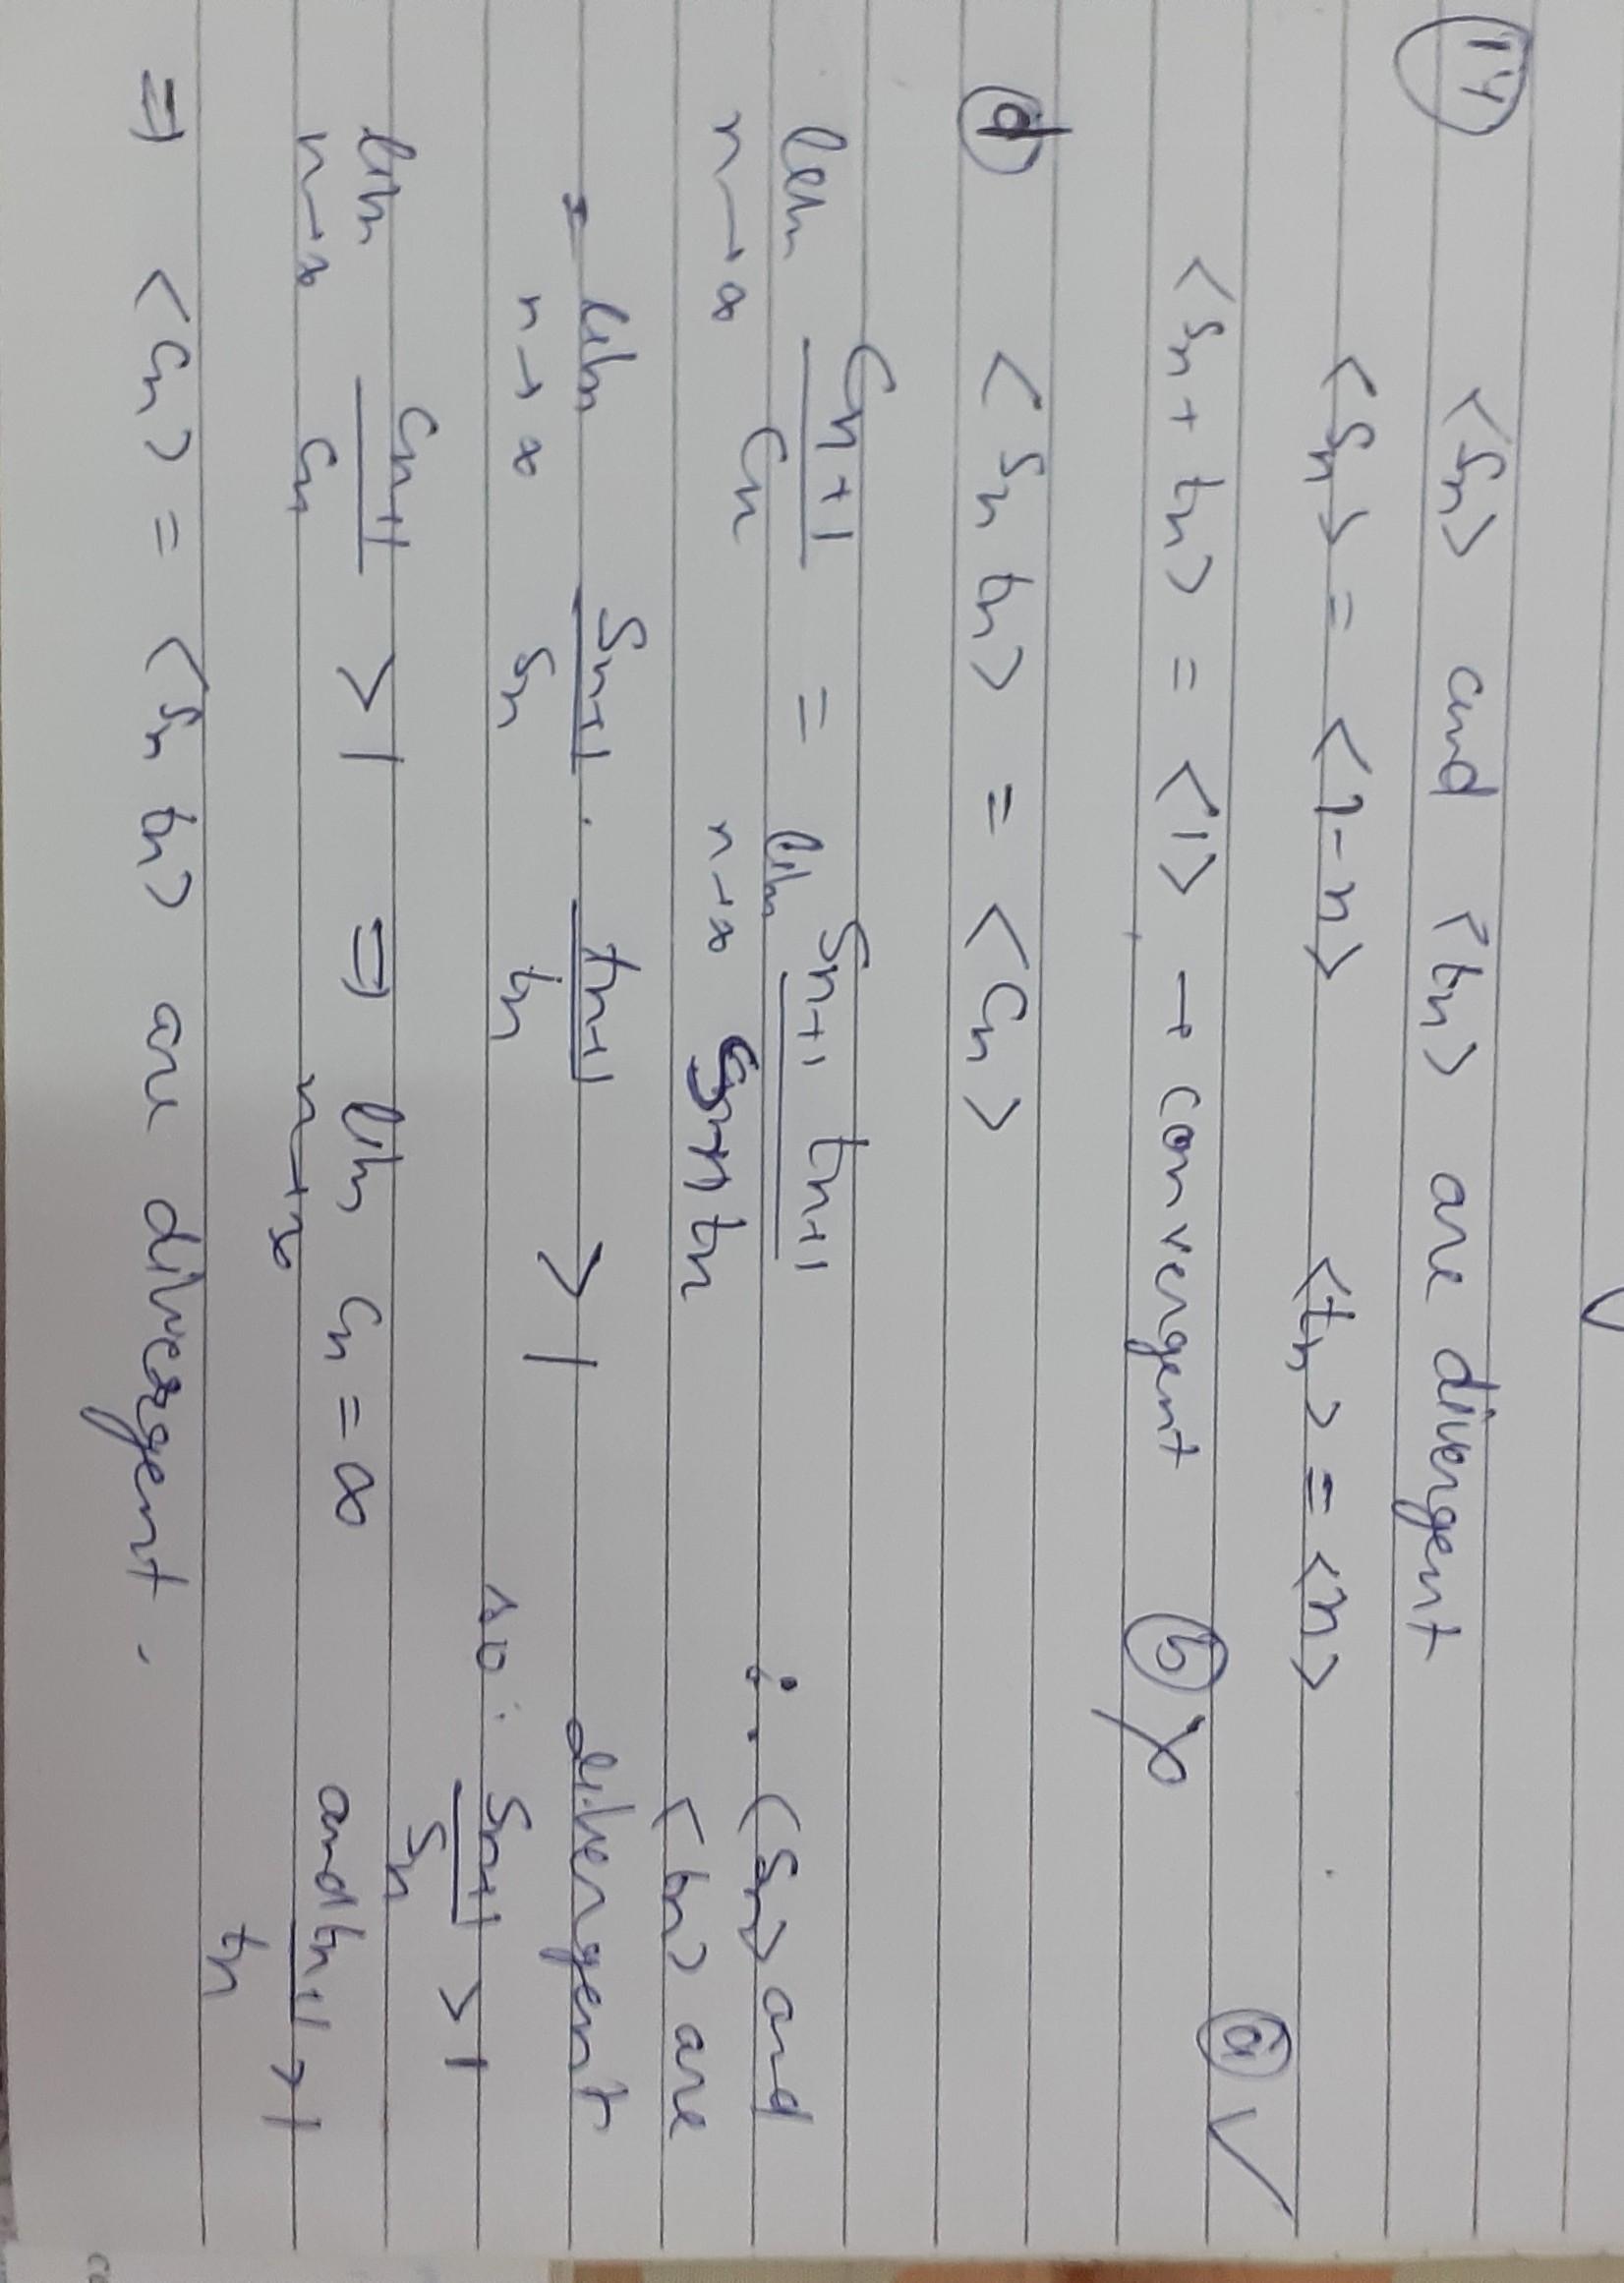 17 <Sn> and <tn> are divergent
<Sn> = <1-n> <tn> = <n>
(a) ✓
<Sn + tn> = <1> → convergent (b) ✗
(d) <Sn tn> = <Cn>
lim n→∞ Cn+1/Cn = lim n→∞ Sn+1 tn+1 / Sn tn
∵ <Sn> and <tn> are divergent
= lim n→∞ Sn+1/Sn . tn+1/tn > 1
so: Sn+1/Sn > 1
and tn+1/tn > 1
lim n→∞ Cn+1/Cn > 1 ⇒ lim n→∞ Cn = ∞
⇒ <Cn> = <Sn tn> are divergent.